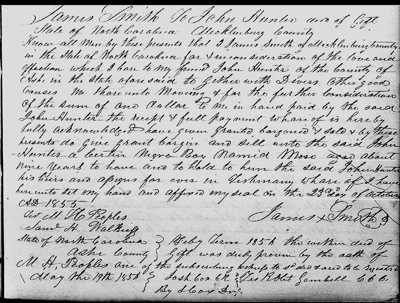 James Smith to John Hunter deed of Gift
State of North Carolina Mecklenburg County
Know all Men by these presents that I James Smith of Mecklenburg County
in the State of North Carolina for & in consideration of the love and
affection which I bare to my friend John Hunter of the County of
Ashe in the State afore said to gether with Divers other good
Causes me thareunto Mooving & for the further Consideration
of the sum of one dollar to me in hand paid by the said
John Hunter the recept & full payment whareof is hereby
fully acknowledgd I have given granted bargoned & sold & by these
presents do give grant bargin and sell unto the said John
Hunter a certin Negro Boy Named Mose aged about
nine years to have and to hold to him the said John Hunter
his heirs and assigns for ever In Testimony whareof I have
here unto set my hand and affixed my seal on the 23d day of October
AD 1855
Test M. H. Peoples James X Smith
Saml H.
State of North Carolina } Feby Term 1856 the within deed of
Ashe County } Gift was duly proven by the oath of
M. H. Peoples one of the subscribing
May the 19th 1856 } Gambill C C C
By